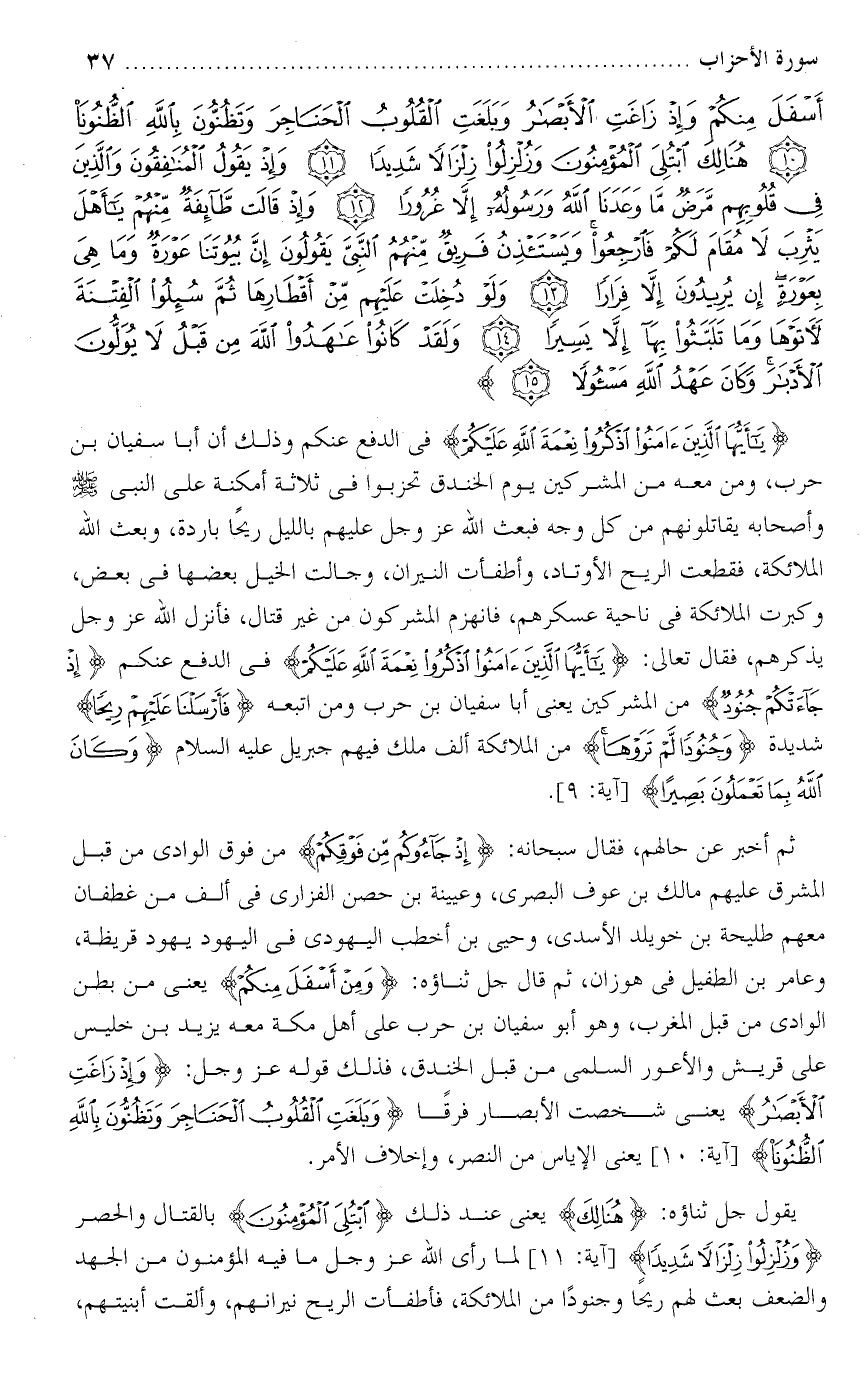 سورة الأحزاب ........................................................................ ٣٧
أَسْفَلَ مِنكُمْ وَإِذْ زَاغَتِ الْأَبْصَارُ وَبَلَغَتِ الْقُلُوبُ الْحَنَاجِرَ وَتَظُنُّونَ بِاللَّهِ الظُّنُونَا
﴿١٠﴾ هُنَالِكَ ابْتُلِيَ الْمُؤْمِنُونَ وَزُلْزِلُوا زِلْزَالًا شَدِيدًا ﴿١١﴾ وَإِذْ يَقُولُ الْمُنَافِقُونَ وَالَّذِينَ
فِي قُلُوبِهِم مَّرَضٌ مَّا وَعَدَنَا اللَّهُ وَرَسُولُهُ إِلَّا غُرُورًا ﴿١٢﴾ وَإِذْ قَالَت طَّائِفَةٌ مِّنْهُمْ يَا أَهْلَ
يَثْرِبَ لَا مُقَامَ لَكُمْ فَارْجِعُوا وَيَسْتَئْذِنُ فَرِيقٌ مِّنْهُمُ النَّبِيَّ يَقُولُونَ إِنَّ بُيُوتَنَا عَوْرَةٌ وَمَا هِيَ
بِعَوْرَةٍ إِن يُرِيدُونَ إِلَّا فِرَارًا ﴿١٣﴾ وَلَوْ دُخِلَتْ عَلَيْهِم مِّنْ أَقْطَارِهَا ثُمَّ سُئِلُوا الْفِتْنَةَ
لَآتَوْهَا وَمَا تَلَبَّثُوا بِهَا إِلَّا يَسِيرًا ﴿١٤﴾ وَلَقَدْ كَانُوا عَاهَدُوا اللَّهَ مِن قَبْلُ لَا يُوَلُّونَ
الْأَدْبَارَ وَكَانَ عَهْدُ اللَّهِ مَسْئُولًا ﴿١٥﴾ ﴾
﴿يَا أَيُّهَا الَّذِينَ ءَامَنُوا اذْكُرُوا نِعْمَةَ اللَّهِ عَلَيْكُمْ﴾ فى الدفع عنكم وذلك أن أبا سفيان بن
حرب، ومن معه من المشركين يوم الخندق تحزبوا فى ثلاثة أمكنة على النبى ﷺ
وأصحابه يقاتلونهم من كل وجه فبعث الله عز وجل عليهم بالليل ريحًا باردة، وبعث الله
الملائكة، فقطعت الريح الأوتاد، وأطفأت النيران، وجالت الخيل بعضها فى بعض،
وكبرت الملائكة فى ناحية عسكرهم، فانهزم المشركون من غير قتال، فأنزل الله عز وجل
يذكرهم، فقال تعالى: ﴿يَا أَيُّهَا الَّذِينَ ءَامَنُوا اذْكُرُوا نِعْمَةَ اللَّهِ عَلَيْكُمْ﴾ فى الدفع عنكم ﴿إِذْ
جَاءَتْكُمْ جُنُودٌ﴾ من المشركين يعنى أبا سفيان بن حرب ومن اتبعه ﴿فَأَرْسَلْنَا عَلَيْهِمْ رِيحًا﴾
شديدة ﴿وَجُنُودًا لَّمْ تَرَوْهَا﴾ من الملائكة ألف ملك فيهم جبريل عليه السلام ﴿وَكَانَ
اللَّهُ بِمَا تَعْمَلُونَ بَصِيرًا﴾ [آية: ٩].
ثم أخبر عن حالهم، فقال سبحانه: ﴿إِذْ جَاءُوكُم مِّن فَوْقِكُمْ﴾ من فوق الوادى من قبل
المشرق عليهم مالك بن عوف البصرى، وعيينة بن حصن الفزارى فى ألف من غطفان
معهم طليحة بن خويلد الأسدى، وحيى بن أخطب اليهودى فى اليهود يهود قريظة،
وعامر بن الطفيل فى هوزان، ثم قال جل ثناؤه: ﴿وَمِنْ أَسْفَلَ مِنكُمْ﴾ يعنى من بطن
الوادى من قبل المغرب، وهو أبو سفيان بن حرب على أهل مكة معه يزيد بن خليس
على قريش والأعور السلمى من قبل الخندق، فذلك قوله عز وجل: ﴿وَإِذْ زَاغَتِ
الْأَبْصَارُ﴾ يعنى شخصت الأبصار فرقًا ﴿وَبَلَغَتِ الْقُلُوبُ الْحَنَاجِرَ وَتَظُنُّونَ بِاللَّهِ
الظُّنُونَا﴾ [آية: ١٠] يعنى الإياس من النصر، وإخلاف الأمر.
يقول جل ثناؤه: ﴿هُنَالِكَ﴾ يعنى عند ذلك ﴿ابْتُلِيَ الْمُؤْمِنُونَ﴾ بالقتال والحصر
﴿وَزُلْزِلُوا زِلْزَالًا شَدِيدًا﴾ [آية: ١١] لما رأى الله عز وجل ما فيه المؤمنون من الجهد
والضعف بعث لهم ريحًا وجنودًا من الملائكة، فأطفأت الريح نيرانهم، وألقت أبنيتهم،